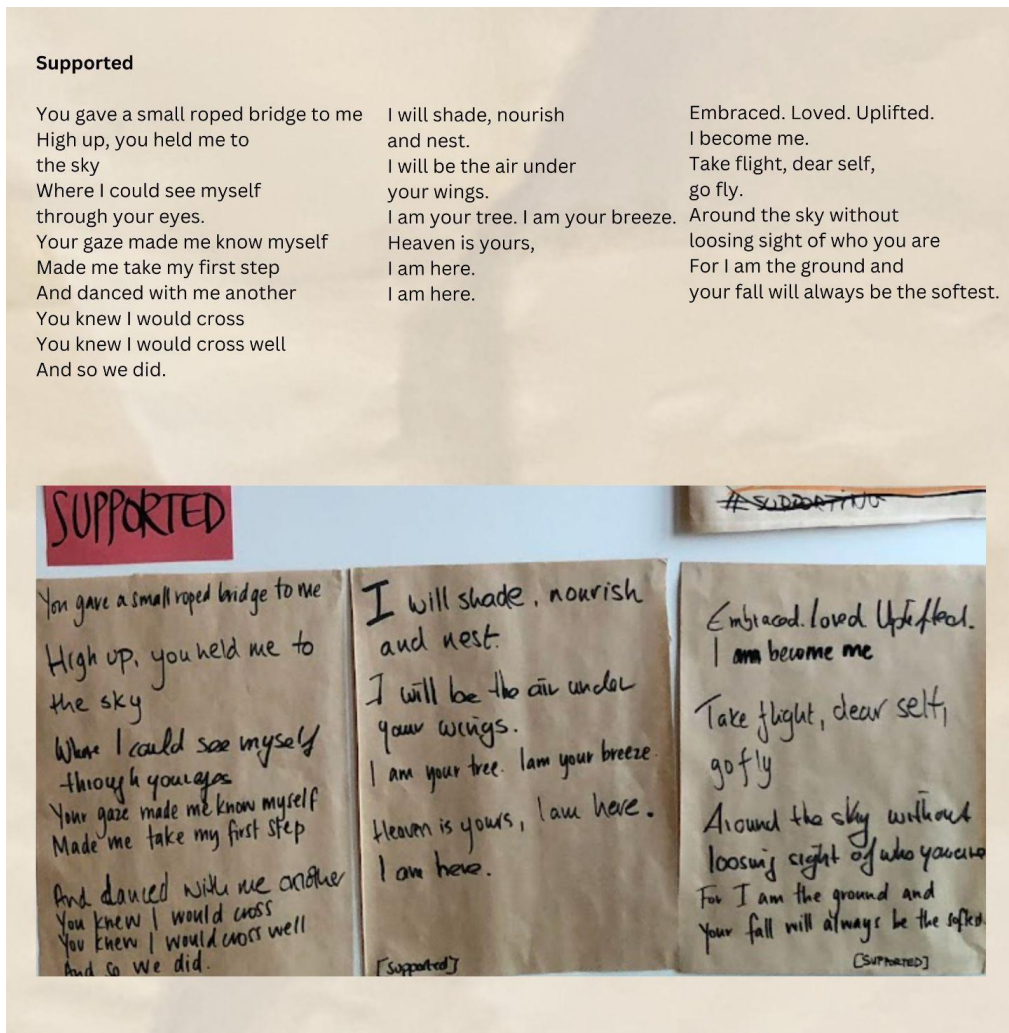 Supported
You gave a small roped bridge to me
High up, you held me to
the sky
Where I could see myself
through your eyes.
Your gaze made me know myself
Made me take my first step
And danced with me another
You knew I would cross
You knew I would cross well
And so we did.
I will shade, nourish
and nest.
I will be the air under
your wings.
I am your tree. I am your breeze.
Heaven is yours,
I am here.
I am here.
Embraced. Loved. Uplifted.
I become me.
Take flight, dear self,
go fly.
Around the sky without
loosing sight of who you are
For I am the ground and
your fall will always be the softest.
SUPPORTED
#SUPPORTING
You gave a small roped bridge to me
High up, you held me to
the sky
Where I could see myself
through your eyes
Your gaze made me know myself
Made me take my first step
And danced with me another
You knew I would cross
You knew I would cross well
And so we did.
I will shade, nourish
and nest.
I will be the air under
your wings.
I am your tree. I am your breeze.
Heaven is yours, I am here.
I am here.
[Supported]
Embraced. Loved. Uplifted.
I am become me
Take flight, dear self,
go fly
Around the sky without
loosing sight of who you are
For I am the ground and
Your fall will always be the
[SUPPORTED]